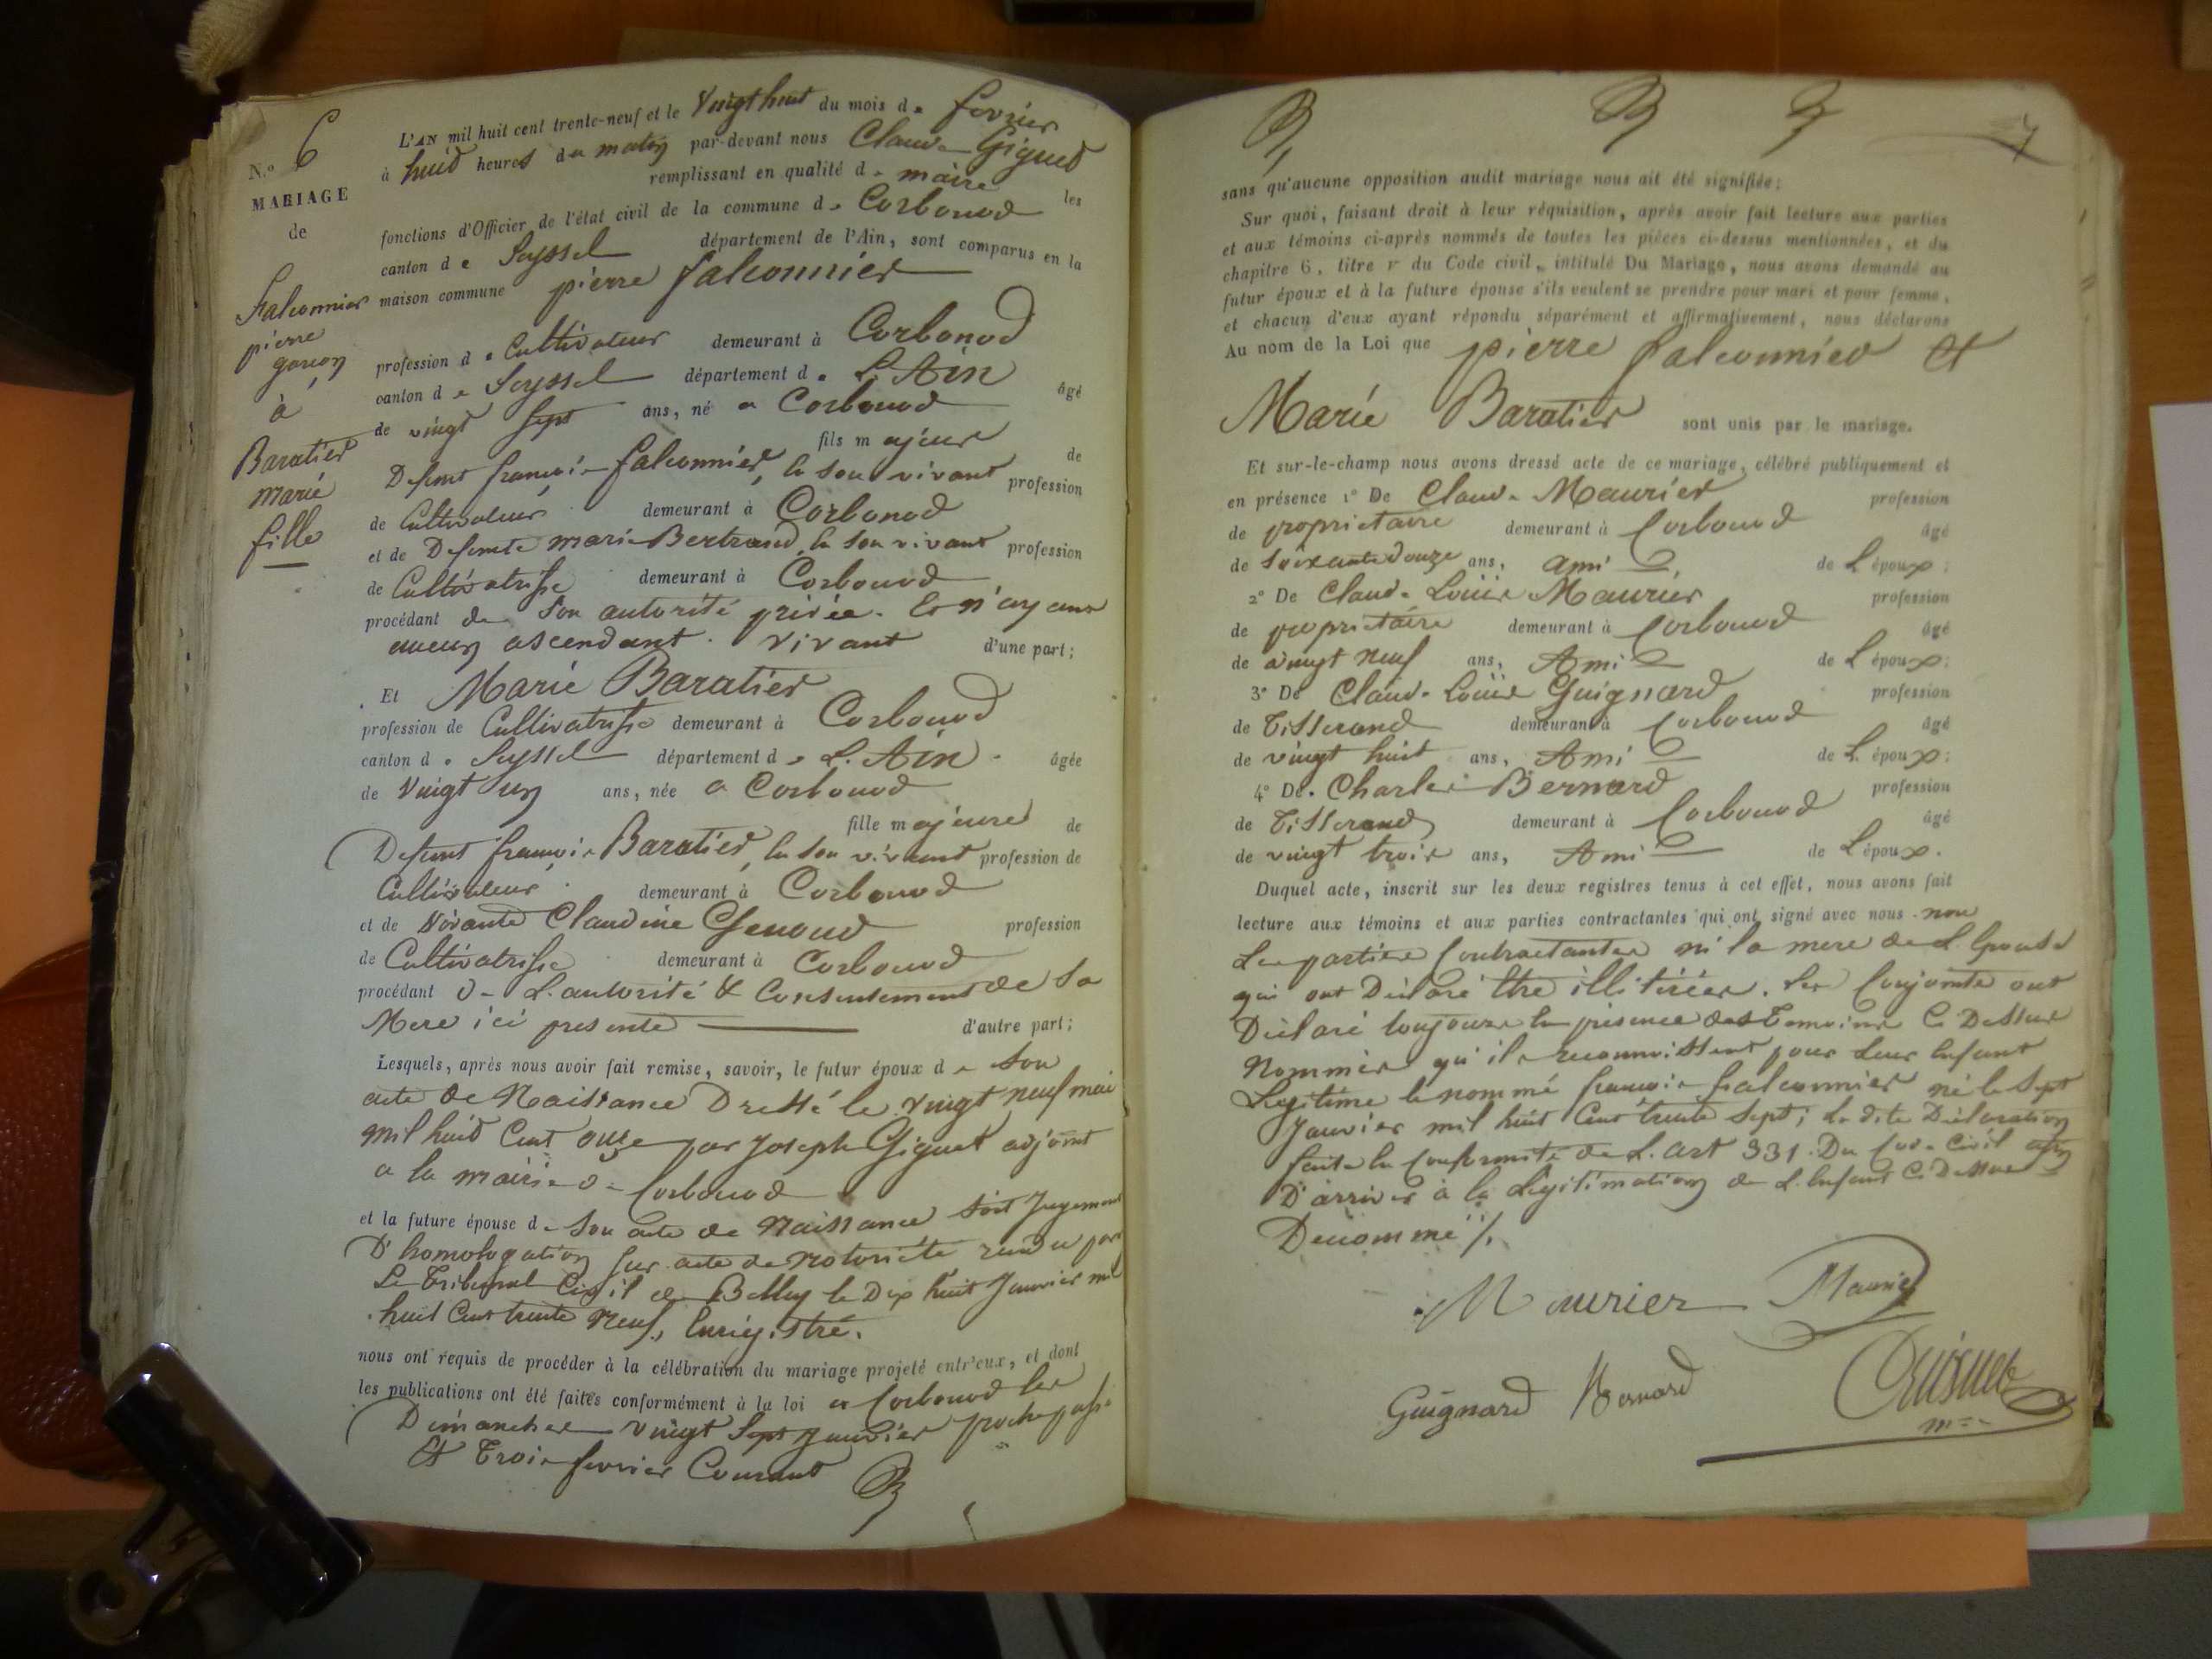 N.o 6
MARIAGE
de
Falconnier
pierre
garçon
à
Baratier
Marie
fille
L'AN mil huit cent trente-neuf et le Vingt huit du mois de fevrier
à huit heures du matin par-devant nous Claude Giguet
remplissant en qualité de maire les
fonctions d'Officier de l'état civil de la commune de Corbonod
canton de Seyssel département de l'Ain, sont comparus en la
maison commune pierre falconnier
profession de Cultivateur demeurant à Corbonod
canton de Seyssel département de L'Ain âgé
de vingt sept ans, né a Corbonod
fils majeur de
Defunt francois falconnier, en son vivant profession
de Cultivateur demeurant à Corbonod
et de Defunte marie Bertrand, en son vivant profession
de Cultivatrisse demeurant à Corbonod
procédant de son autorité privée. Et n'ayant
aucun ascendant vivant d'une part;
Et Marie Baratier
profession de Cultivatrisse demeurant à Corbonod
canton de Seyssel département de L'Ain âgée
de Vingt un ans, née a Corbonod
fille majeure de
Defunt francois Baratier, en son vivant profession de
Cultivateur demeurant à Corbonod
et de Vivante Claudine Genoud profession
de Cultivatrisse demeurant à Corbonod
procédant de L'autorité & Consentement de sa
Mere ici presente d'autre part;
Lesquels, après nous avoir fait remise, savoir, le futur époux de son
acte de Naissance Dressé le vingt neuf mai
mil huit Cent onze par Joseph Giguet adjoint
a la mairie de Corbonod
et la future épouse de son acte de Naissance soit Jugement
D'homologation sur acte de Notoriété rendu par
Le Tribunal Civil de Belley le Dix huit Janvier mil
huit Cent trente Neuf, Enrégistré.
nous ont requis de procéder à la célébration du mariage projeté entr'eux, et dont
les publications ont été faites conformément à la loi a Corbonod les
Dimanches vingt Sept Janvier proche passé
& Trois fevrier Courant
7
sans qu'aucune opposition audit mariage nous ait été signifiée;
Sur quoi, faisant droit à leur réquisition, après avoir fait lecture aux parties
et aux témoins ci-après nommés de toutes les pièces ci-dessus mentionnées, et du
chapitre 6, titre v du Code civil, intitulé Du Mariage, nous avons demandé au
futur époux et à la future épouse s'ils veulent se prendre pour mari et pour femme,
et chacun d'eux ayant répondu séparément et affirmativement, nous déclarons
Au nom de la Loi que pierre falconnier &
Marie Baratier sont unis par le mariage.
Et sur-le-champ nous avons dressé acte de ce mariage, célébré publiquement et
en présence 1° De Claude Maurier profession
de propriétaire demeurant à Corbonod âgé
de soixante douze ans, ami de L'époux;
2° De Claude Louis Maurier profession
de propriétaire demeurant à Corbonod âgé
de vingt neuf ans, Ami de L'époux;
3° De Claude Louis Guignard profession
de Tisserand demeurant à Corbonod âgé
de vingt huit ans, Ami de L'époux;
4° De Charles Bernard profession
de Tisserand demeurant à Corbonod âgé
de vingt trois ans, Ami de L'époux.
Duquel acte, inscrit sur les deux registres tenus à cet effet, nous avons fait
lecture aux témoins et aux parties contractantes qui ont signé avec nous non
Les parties Contractantes ni la mere de L'Epouse
qui ont Déclaré Etre illitérées. Les Conjoints ont
Déclaré toujours en présence des Temoins Ci Dessus
Nommés qu'ils reconnoissent pour Leur Enfant
Légitime le nommé francois falconnier né le Sept
Janvier mil huit Cent trente Sept; La dite Déclaration
faite en Conformité de L'art 331. Du Code Civil afin
D'arriver à la Légitimation de L'Enfant Ci Dessus
Dénommé
Maurier Maurier
Guignard Bernard Giguet
m=e